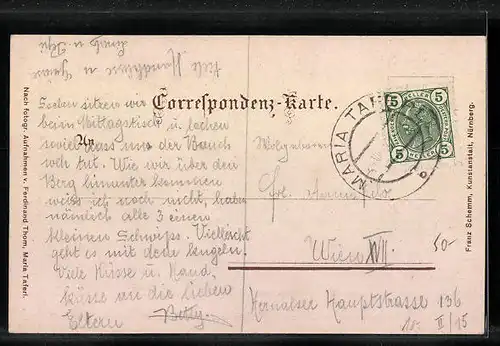 Correspondenz-Karte.
An
Soeben sitzen wir
beim Mittagstisch u. lachen
soviel dass uns der Bauch
weh tut. Wie wir über den
Berg hinunter kommen
weiss ich noch nicht, habe
nämlich alle 3 einen
kleinen Schwips. Vielleicht
geht es mit dem kugeln.
Viele Küsse u. Hand
küsse an die lieben
Eltern Betty
Viele
Wolgeboren
Frl.
Wien XVII.
Hernalser Hauptstrasse 136
II/15
MARIA TAFERL
5 HELLER 5
5 HELLER 5
50-
Nach fotogr. Aufnahmen v. Ferdinand Thom, Maria Taferl.
Franz Schemm, Kunstanstalt, Nürnberg.